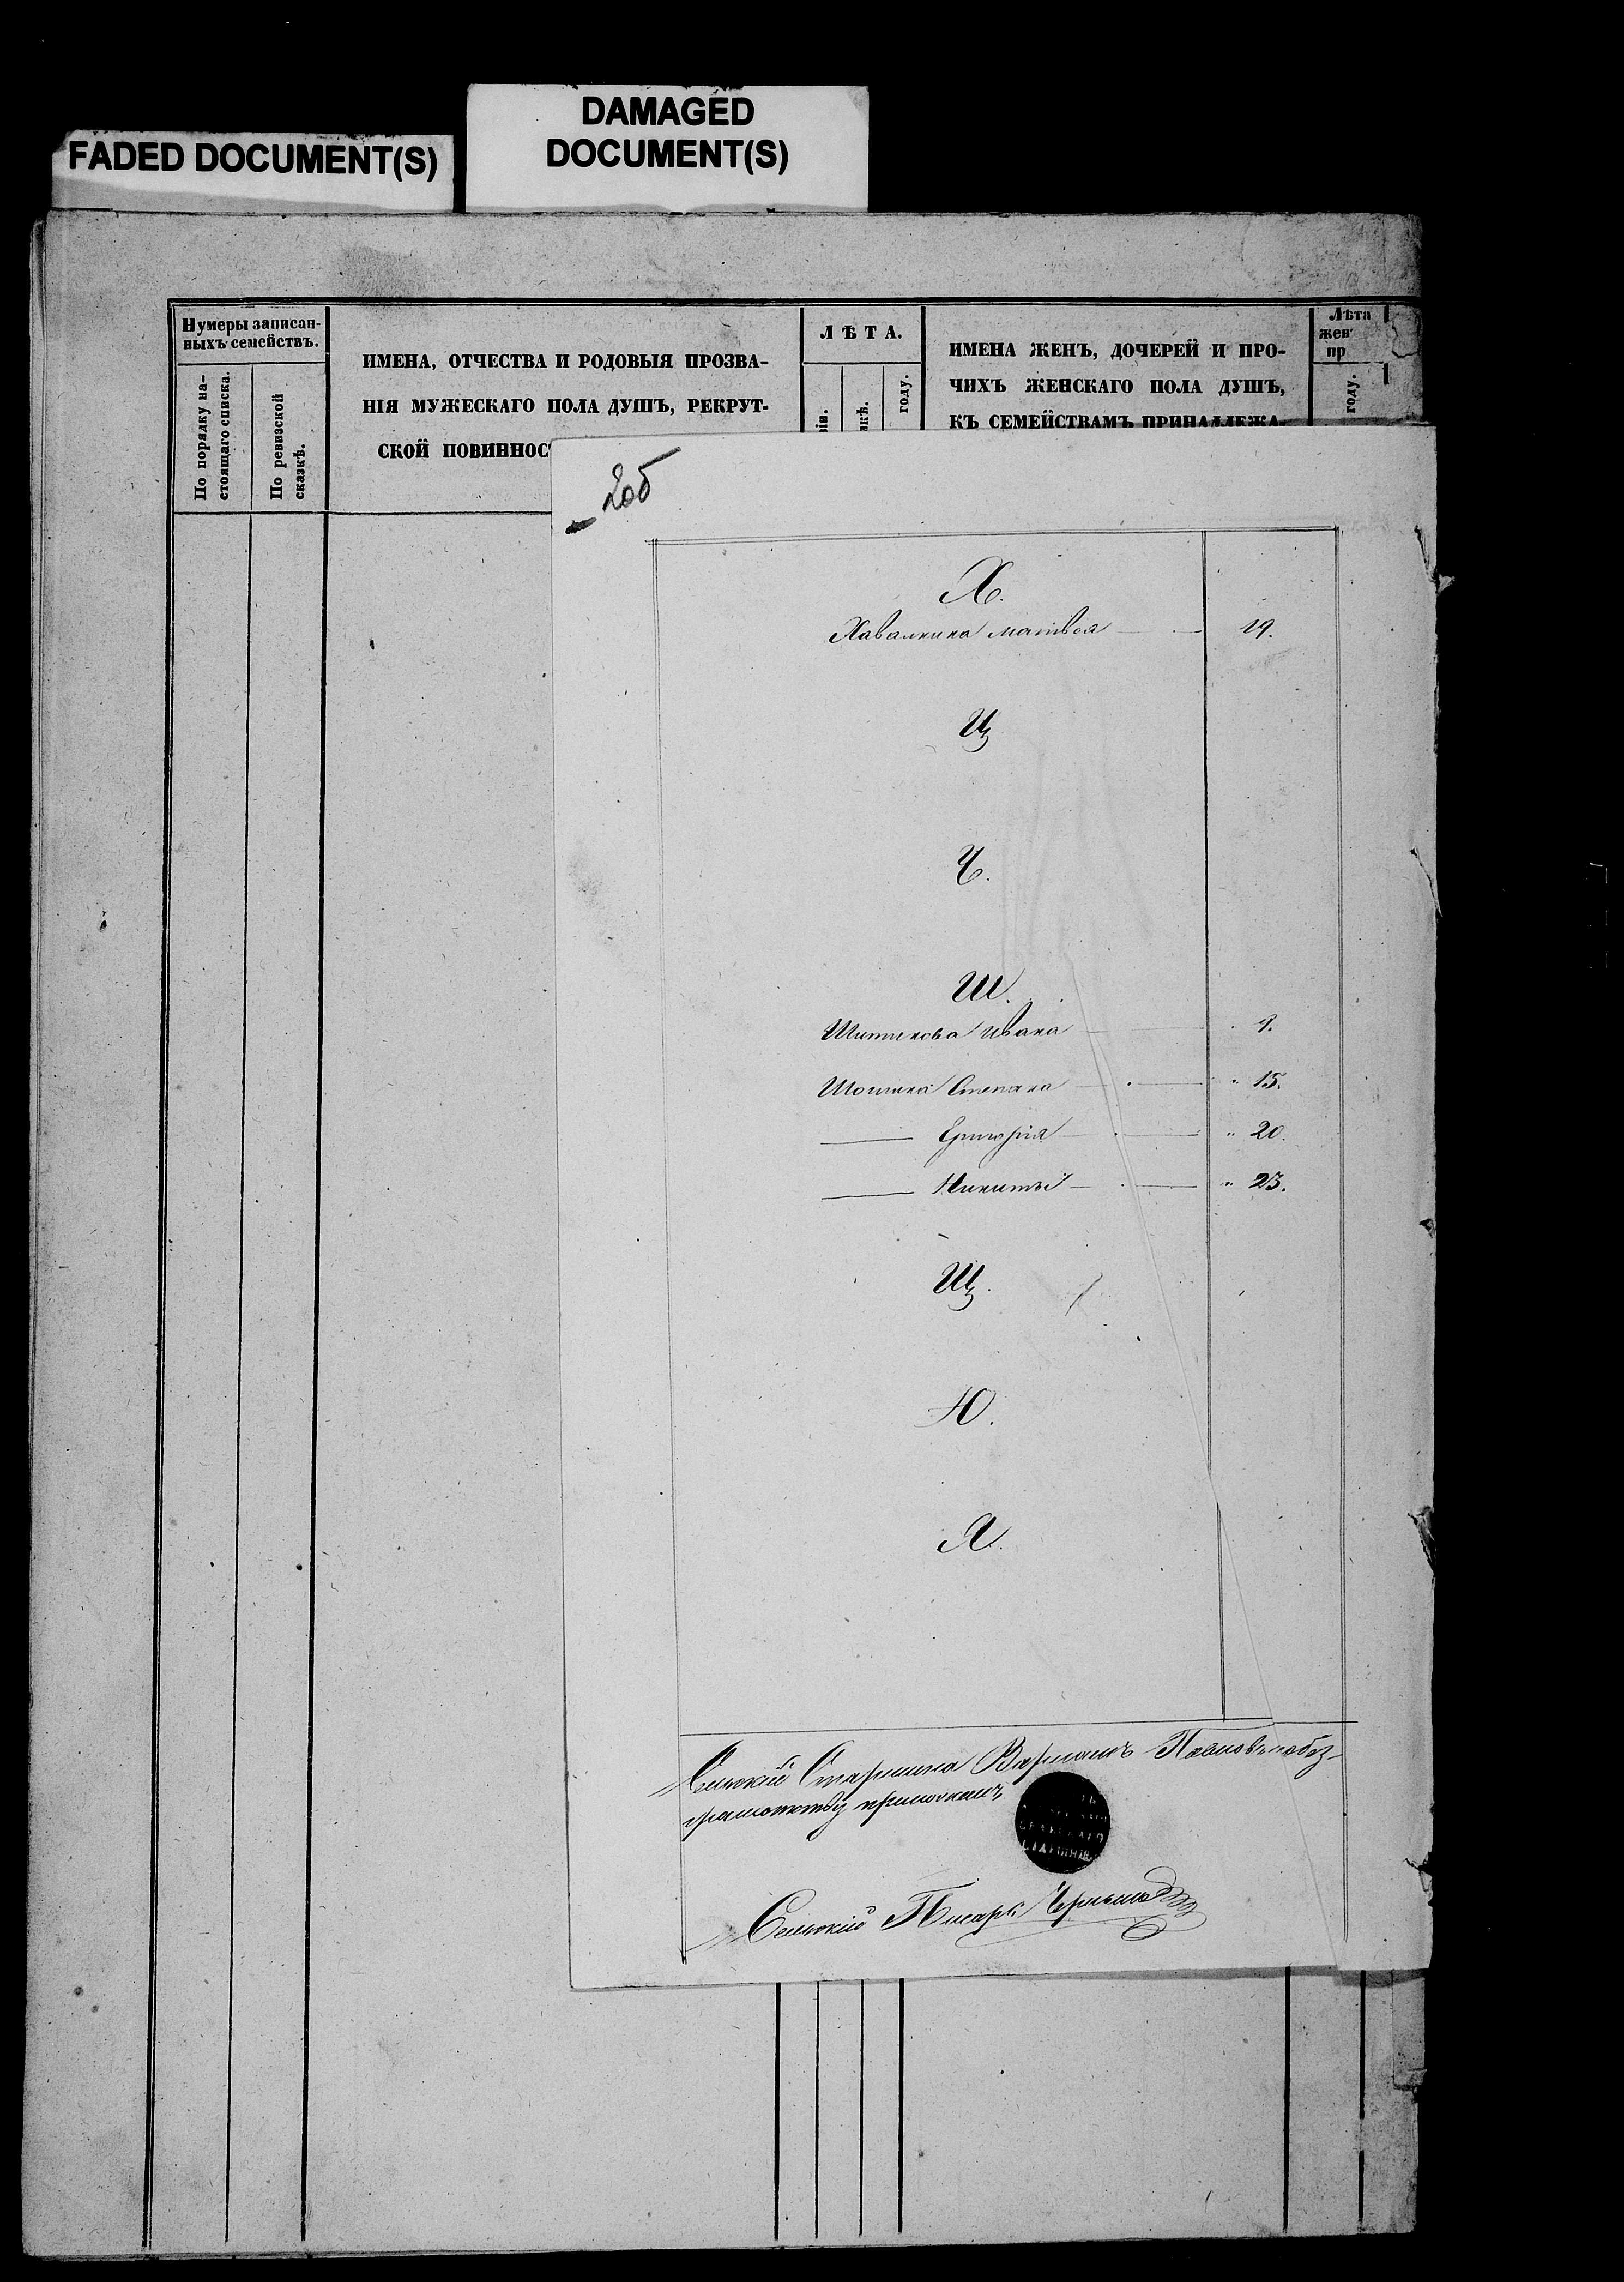 FADED DOCUMENT(S)
DAMAGED
DOCUMENT(S)
Нумеры записан-
ныхъ семействъ.
По порядку на-
стоящаго списка.
По ревизской
сказкѣ.
ИМЕНА, ОТЧЕСТВА И РОДОВЫЯ ПРОЗВА-
НІЯ МУЖЕСКАГО ПОЛА ДУШЪ, РЕКРУТ-
СКОЙ ПОВИННОС
ЛѢТА.
году.
ИМЕНА ЖЕНЪ, ДОЧЕРЕЙ И ПРО-
ЧИХЪ ЖЕНСКАГО ПОЛА ДУШЪ,
КЪ СЕМЕЙСТВАМЪ ПРИНАДЛЕЖА-
Лѣта
жен
пр
году.
Х.
Хавалкина Матвея 19.
Ц
Ч.
Ш.
Шитикова Ивана 9.
Степана " 15.
Григорія " 20.
Никиты " 23.
Щ.
Ю.
Я.
Сельскій Старшина
Сельскій Писарь